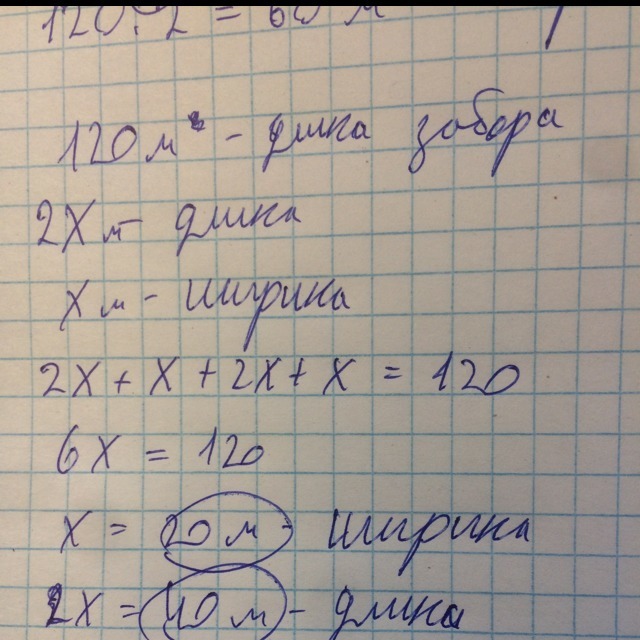 120 : 2 = 60 м
120 м - длина забора
2X м - длина
X м - ширина
2X + X + 2X + X = 120
6X = 120
X = 20 м - ширина
2X = 40 м - длина